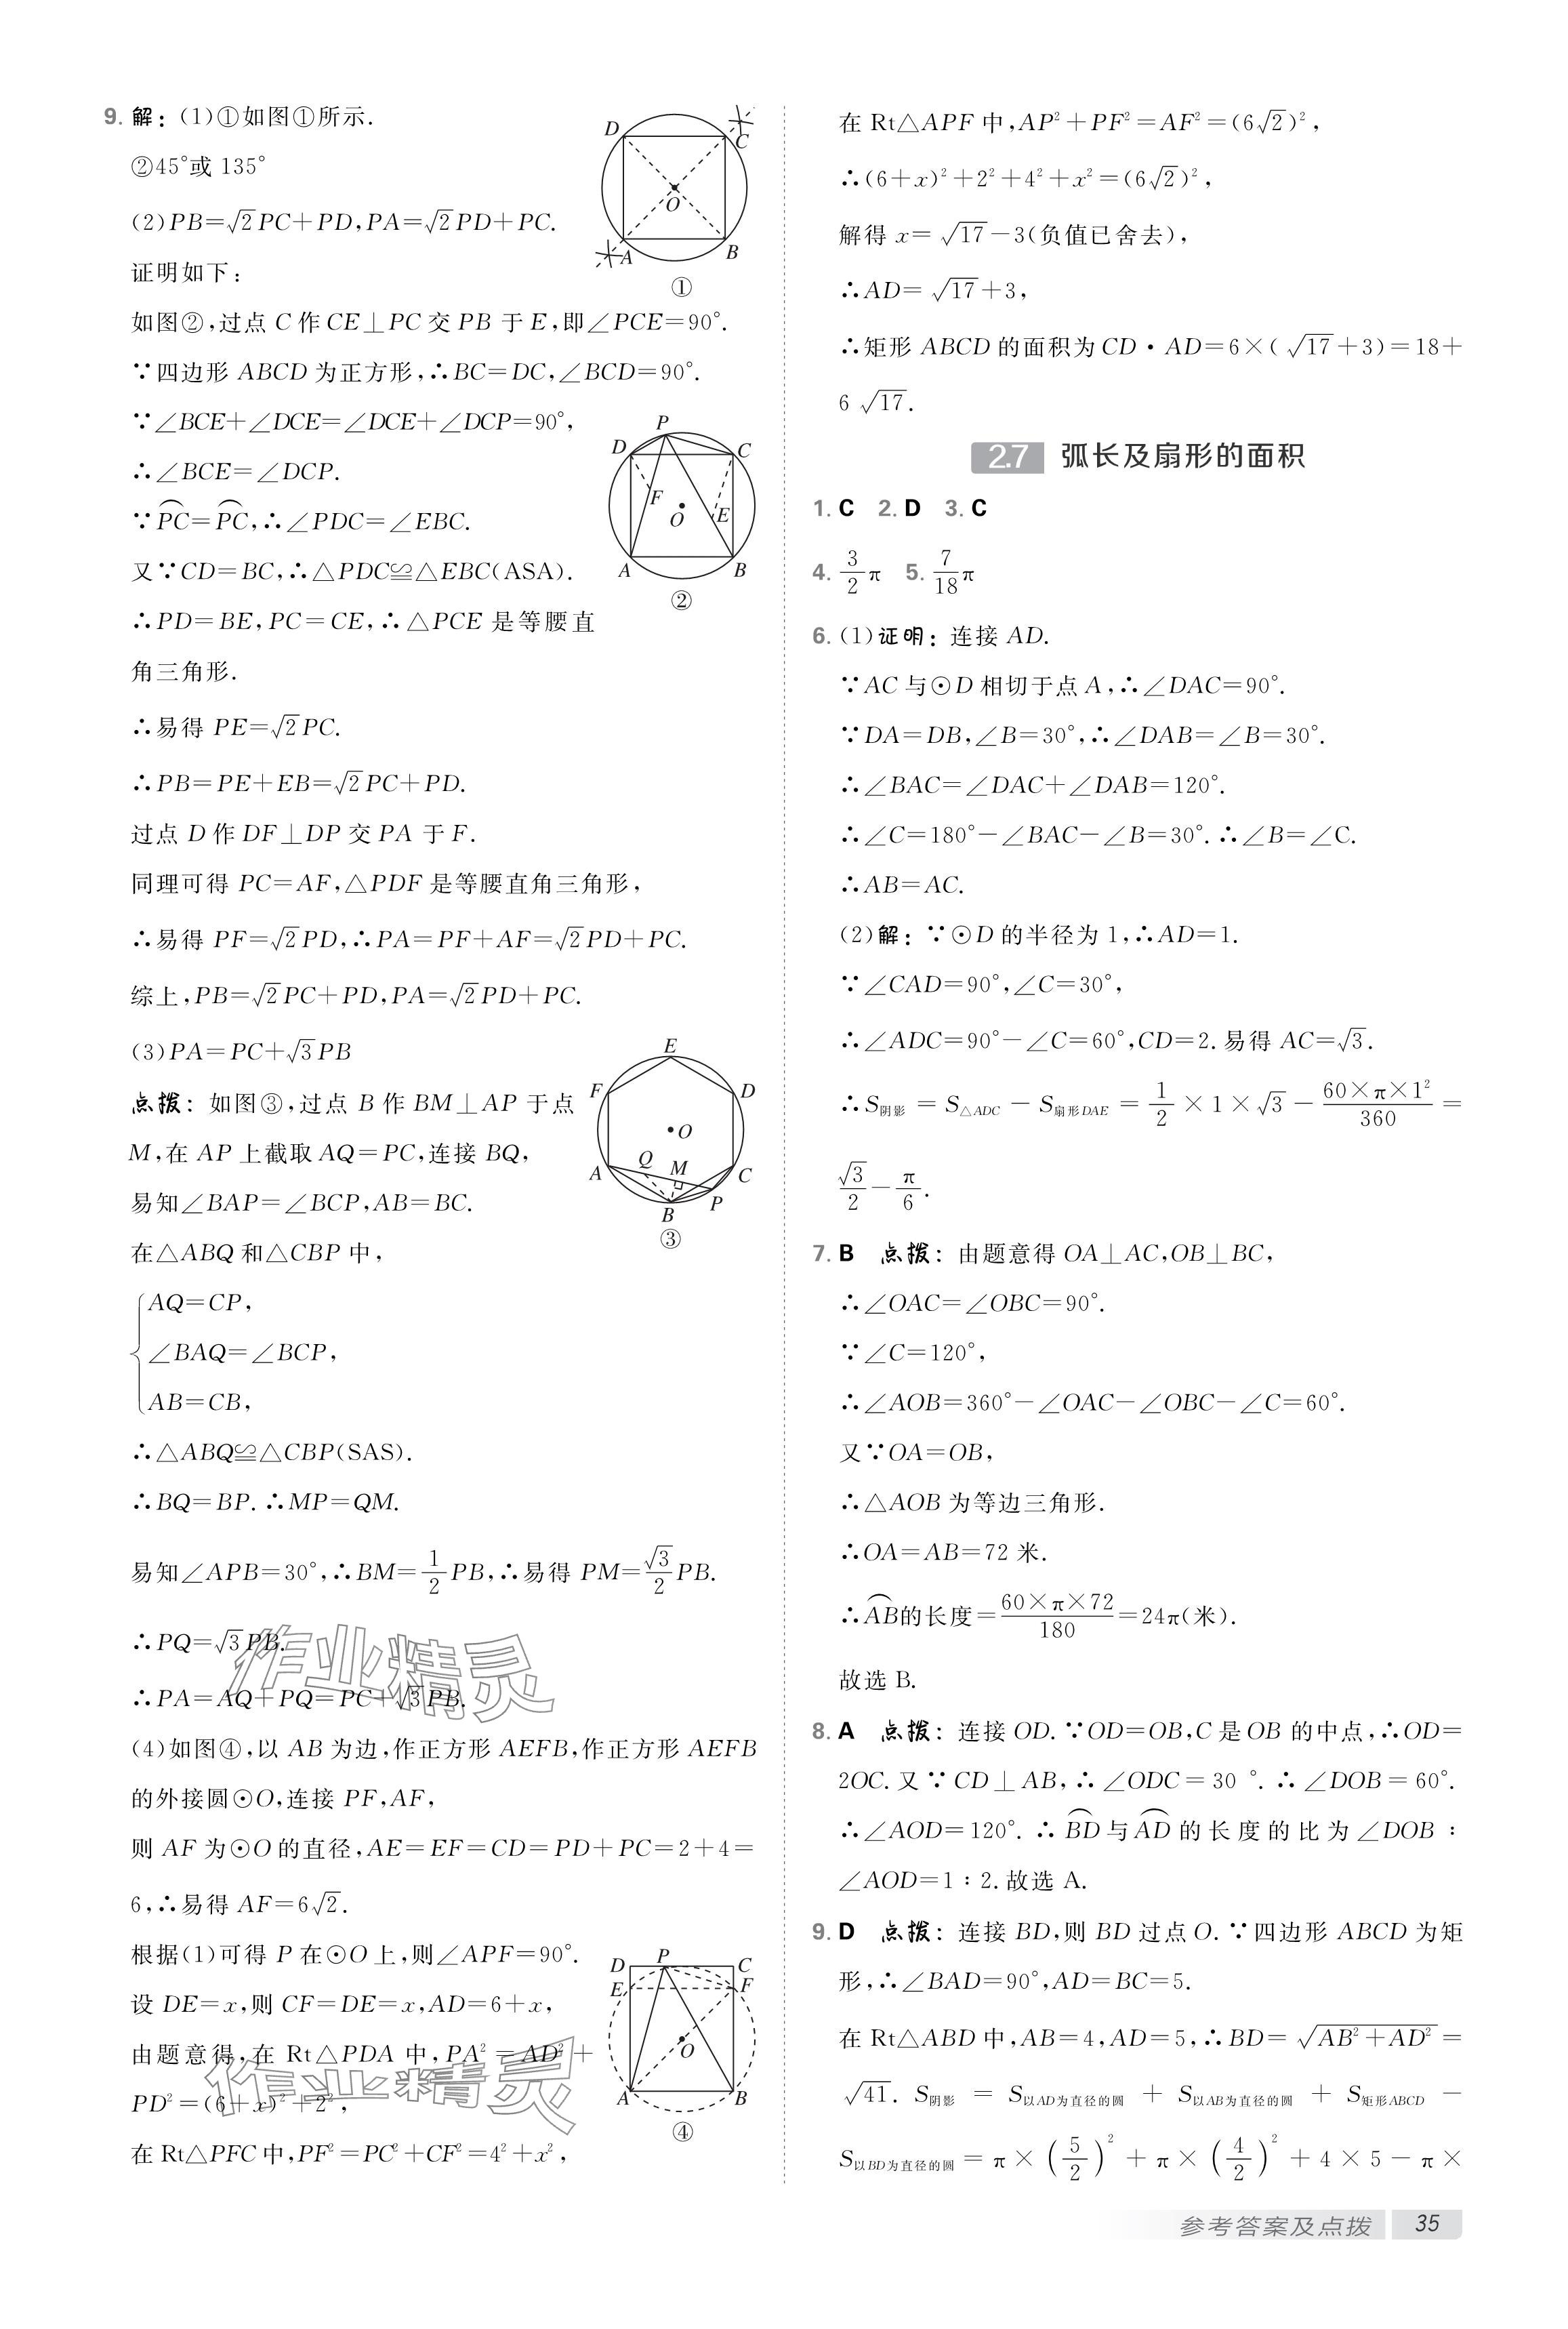 9. 解：(1)①如图①所示.
②45°或 135°
(2)PB=√2PC+PD,PA=√2PD+PC.
证明如下：
D
C
O
A
B
①
如图②,过点 C 作 CE⊥PC 交 PB 于 E,即∠PCE=90°.
∵四边形 ABCD 为正方形,∴BC=DC,∠BCD=90°.
∵∠BCE+∠DCE=∠DCE+∠DCP=90°,
∴∠BCE=∠DCP.
∵P͡C=P͡C,∴∠PDC=∠EBC.
又∵CD=BC,∴△PDC≌△EBC(ASA).
∴PD=BE,PC=CE,∴△PCE 是等腰直
角三角形.
P
D
C
F
O
E
A
B
②
∴易得 PE=√2PC.
∴PB=PE+EB=√2PC+PD.
过点 D 作 DF⊥DP 交 PA 于 F.
同理可得 PC=AF,△PDF 是等腰直角三角形,
∴易得 PF=√2PD,∴PA=PF+AF=√2PD+PC.
综上,PB=√2PC+PD,PA=√2PD+PC.
(3)PA=PC+√3PB
点拨：如图③,过点 B 作 BM⊥AP 于点
M,在 AP 上截取 AQ=PC,连接 BQ,
易知∠BAP=∠BCP,AB=BC.
在△ABQ 和△CBP 中,
E
F
D
O
Q
M
A
C
B
P
③
AQ=CP,
∠BAQ=∠BCP,
AB=CB,
∴△ABQ≌△CBP(SAS).
∴BQ=BP.∴MP=QM.
易知∠APB=30°,∴BM=1/2PB,∴易得 PM=√3/2PB.
∴PQ=√3PB.
∴PA=AQ+PQ=PC+√3PB.
作业精灵
(4)如图④,以 AB 为边,作正方形 AEFB,作正方形 AEFB
的外接圆⊙O,连接 PF,AF,
则 AF 为⊙O 的直径,AE=EF=CD=PD+PC=2+4=
6,∴易得 AF=6√2.
根据(1)可得 P 在⊙O 上,则∠APF=90°.
设 DE=x,则 CF=DE=x,AD=6+x,
由题意得,在 Rt△PDA 中,PA²=AD²+
PD²=(6+x)²+2²,
在 Rt△PFC 中,PF²=PC²+CF²=4²+x²,
作业精灵
D
P
C
E
F
O
A
B
④
在 Rt△APF 中,AP²+PF²=AF²=(6√2)²,
∴(6+x)²+2²+4²+x²=(6√2)²,
解得 x=√17-3(负值已舍去),
∴AD=√17+3,
∴矩形 ABCD 的面积为 CD·AD=6×(√17+3)=18+
6√17.
2.7 弧长及扇形的面积
1. C 2. D 3. C
4. 3/2π 5. 7/18π
6. (1)证明：连接 AD.
∵AC 与⊙D 相切于点 A,∴∠DAC=90°.
∵DA=DB,∠B=30°,∴∠DAB=∠B=30°.
∴∠BAC=∠DAC+∠DAB=120°.
∴∠C=180°-∠BAC-∠B=30°.∴∠B=∠C.
∴AB=AC.
(2)解：∵⊙D 的半径为 1,∴AD=1.
∵∠CAD=90°,∠C=30°,
∴∠ADC=90°-∠C=60°,CD=2.易得 AC=√3.
∴S阴影=S△ADC-S扇形DAE=1/2×1×√3-(60×π×1²)/360=
√3/2-π/6.
7. B 点拨：由题意得 OA⊥AC,OB⊥BC,
∴∠OAC=∠OBC=90°.
∵∠C=120°,
∴∠AOB=360°-∠OAC-∠OBC-∠C=60°.
又∵OA=OB,
∴△AOB 为等边三角形.
∴OA=AB=72 米.
∴A͡B的长度=(60×π×72)/180=24π(米).
故选 B.
8. A 点拨：连接 OD.∵OD=OB,C 是 OB 的中点,∴OD=
2OC.又∵CD⊥AB,∴∠ODC=30 °.∴∠DOB=60°.
∴∠AOD=120°.∴B͡D与A͡D的长度的比为∠DOB：
∠AOD=1∶2.故选 A.
9. D 点拨：连接 BD,则 BD 过点 O.∵四边形 ABCD 为矩
形,∴∠BAD=90°,AD=BC=5.
在 Rt△ABD 中,AB=4,AD=5,∴BD=√(AB²+AD²)=
√41. S阴影=S以AD为直径的圆+S以AB为直径的圆+S矩形ABCD-
S以BD为直径的圆=π×(5/2)²+π×(4/2)²+4×5-π×
参考答案及点拨 35